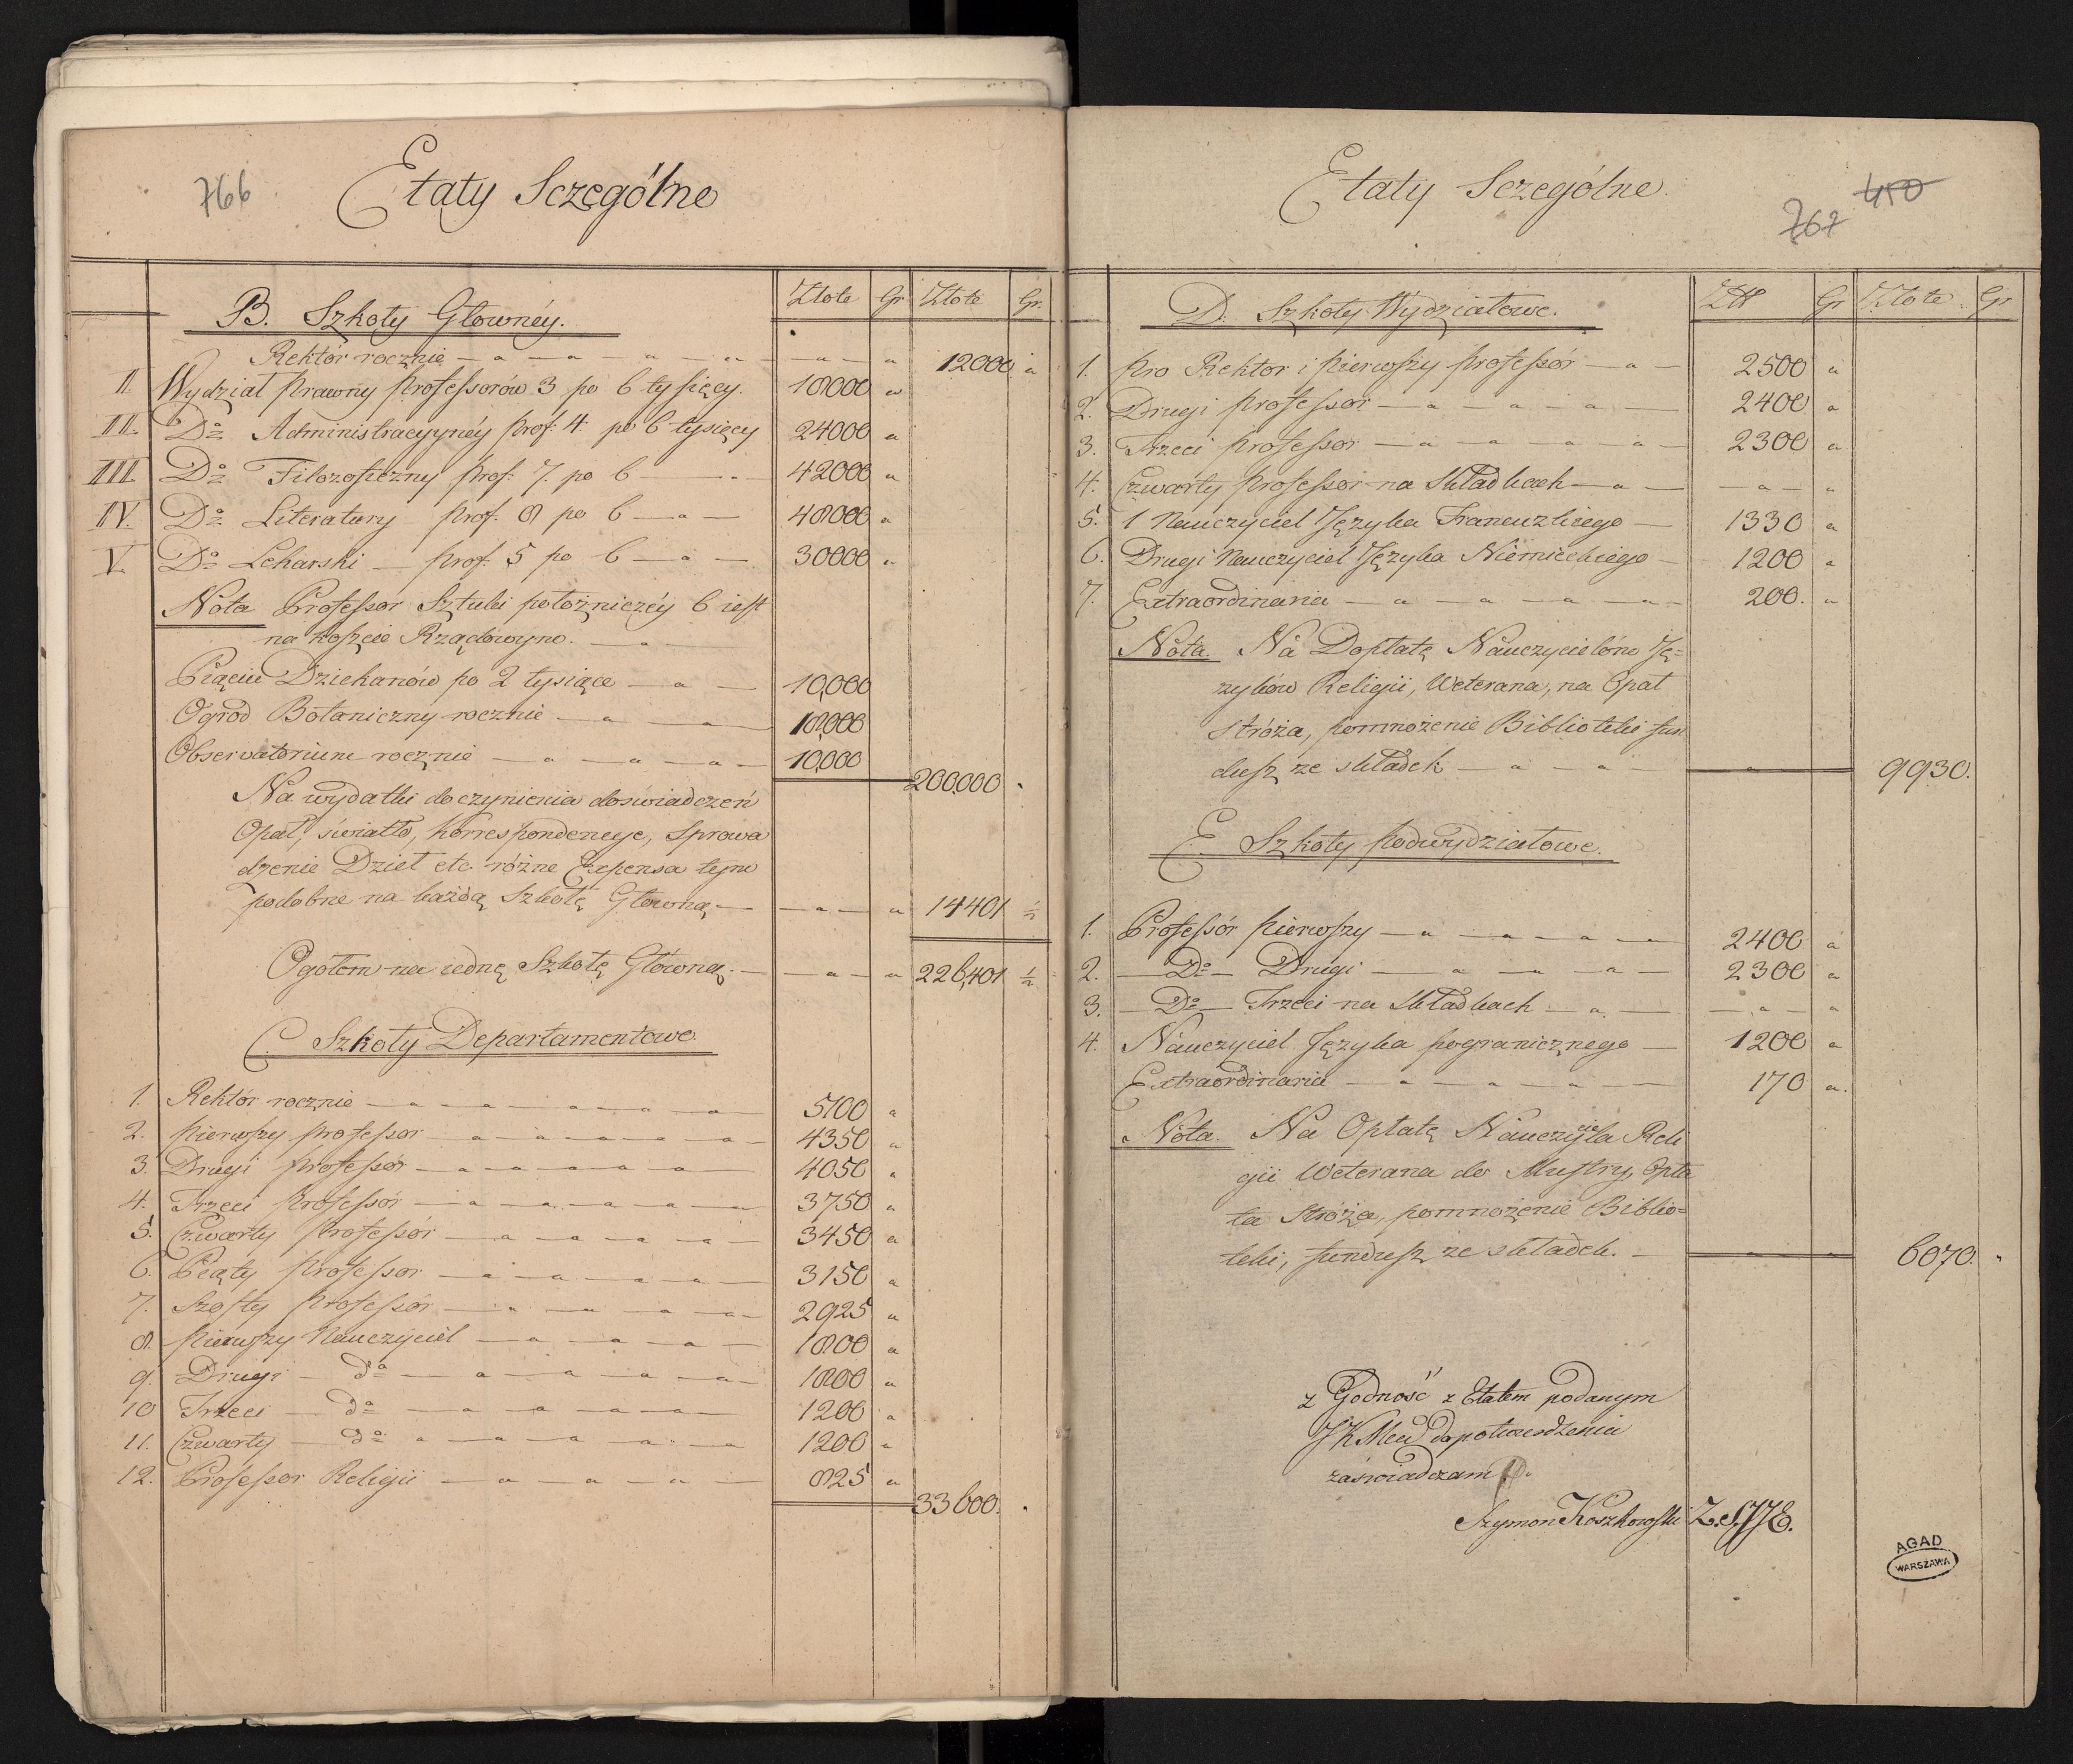 766
Etaty Sczególne
Złote Gr Złote Gr.
B. Szkoły Głownéy.
Rektór rocznie 12000
II. Wydział Prawny Professorów 3 po 6 tysięcy. 18000
III. Do Administracyynéy prof: 4. po 6 tysięcy 24000
III. Do Filozoficzny prof: 7. po 6 42000
IV. Do Literatury prof. 8 po 6 48000
V. Do Lekarski prof. 5 po 6 30000
Nota Professor Sztuki położniczéy 6 iest
na koszcie Rządowym.
Pięciu Dziekanów po 2 tysiące 10,000
Ogród Botaniczny rocznie 18,000
Obserwatorium rocznie 10,000
200.000
Na wydatki do czynienia doświadczeń
Opał, światło, korrespondencye, Sprowa
dzenie Dzieł etc. różne Expensa tym
podobne na każdą Szkołę Głowną 14401 1/2
Ogołem na iednę Szkołę Głowną. 226,401 1/2
C. Szkoły Departamentowe.
1. Rektór rocznie 5100
2. pierwszy professor 4350
3. Drugi professór 4050
4. Trzeci Professór 3750
5. Czwarty Professór 3450
6. Piąty Professor 3150
7. Szosty Professór 2925
8. pierwszy Nauczyciel 1800
9. Drugi do 1800
10 Trzeci do 1200
11. Czwarty do 1200
12. Professor Religii 825
33600.
Etaty Sczególne.
450
767
Zł Gr Złote Gr
D. Szkoły Wydziałowe.
1. Pro Rektor i pierwszy professór 2500
2. Drugi professor 2400
3. Trzeci professor 2300
4. Czwarty professor na składkach
5. 1 Nauczyciel Języka Francuzkiego 1330
6. Drugi Nauczyciel Języka Niemieckiego 1200
7. Extraordinaria 200.
Nota. Na Dopłatę Nauczycielów Ję=
zyków Religii, Weterana, na Opał
stróża, pomnożenie Biblioteki fun
dusz ze składek 9930.
E Szkoły podwydziałowe.
1. Professór pierwszy 2400
2. Do Drugi 2300
3. Do Trzeci na składkach
4. Nauczyciel Języka pogranicznego 1200
Extraordinaria 170
Nota. Na Opłatę Nauczyciela Reli
gii Weterana do Mustry, Opła
ta Stróża, pomnożenie Biblio=
teki, fundusz ze składek. 6070.
z Godność z Etatem podanym
JKMci do potwierdzenia
zaświadczam
Szymon Koszkowski Z.S.JJE.
AGAD
WARSZAWA